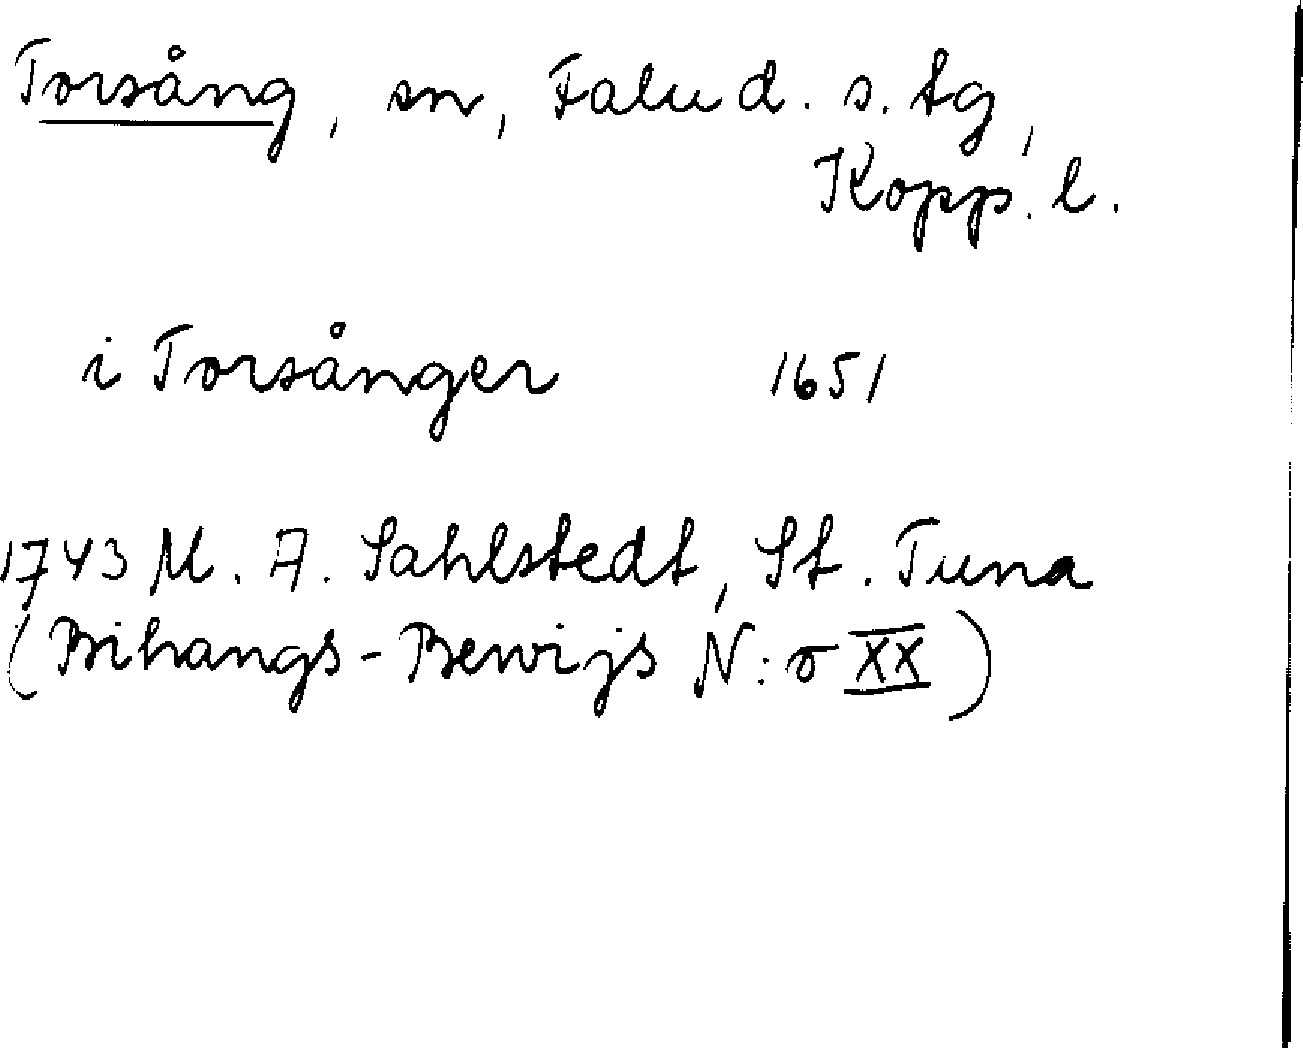 Torsång, sn, Falu d. s. tg,
Kopp. l.
i Torsånger 1651
1743 M. A. Sahlstedt, St. Tuna
(Bihangs-Bewijs N:o XX)